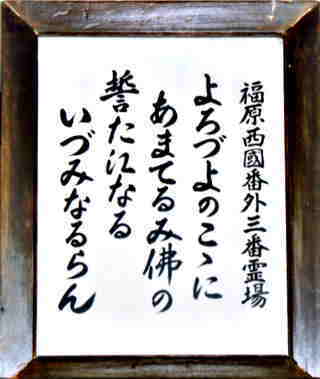 福原西國番外三番霊場
よろづよのこゝに
あまてるみ佛の
誓たになる
いづみなるらん